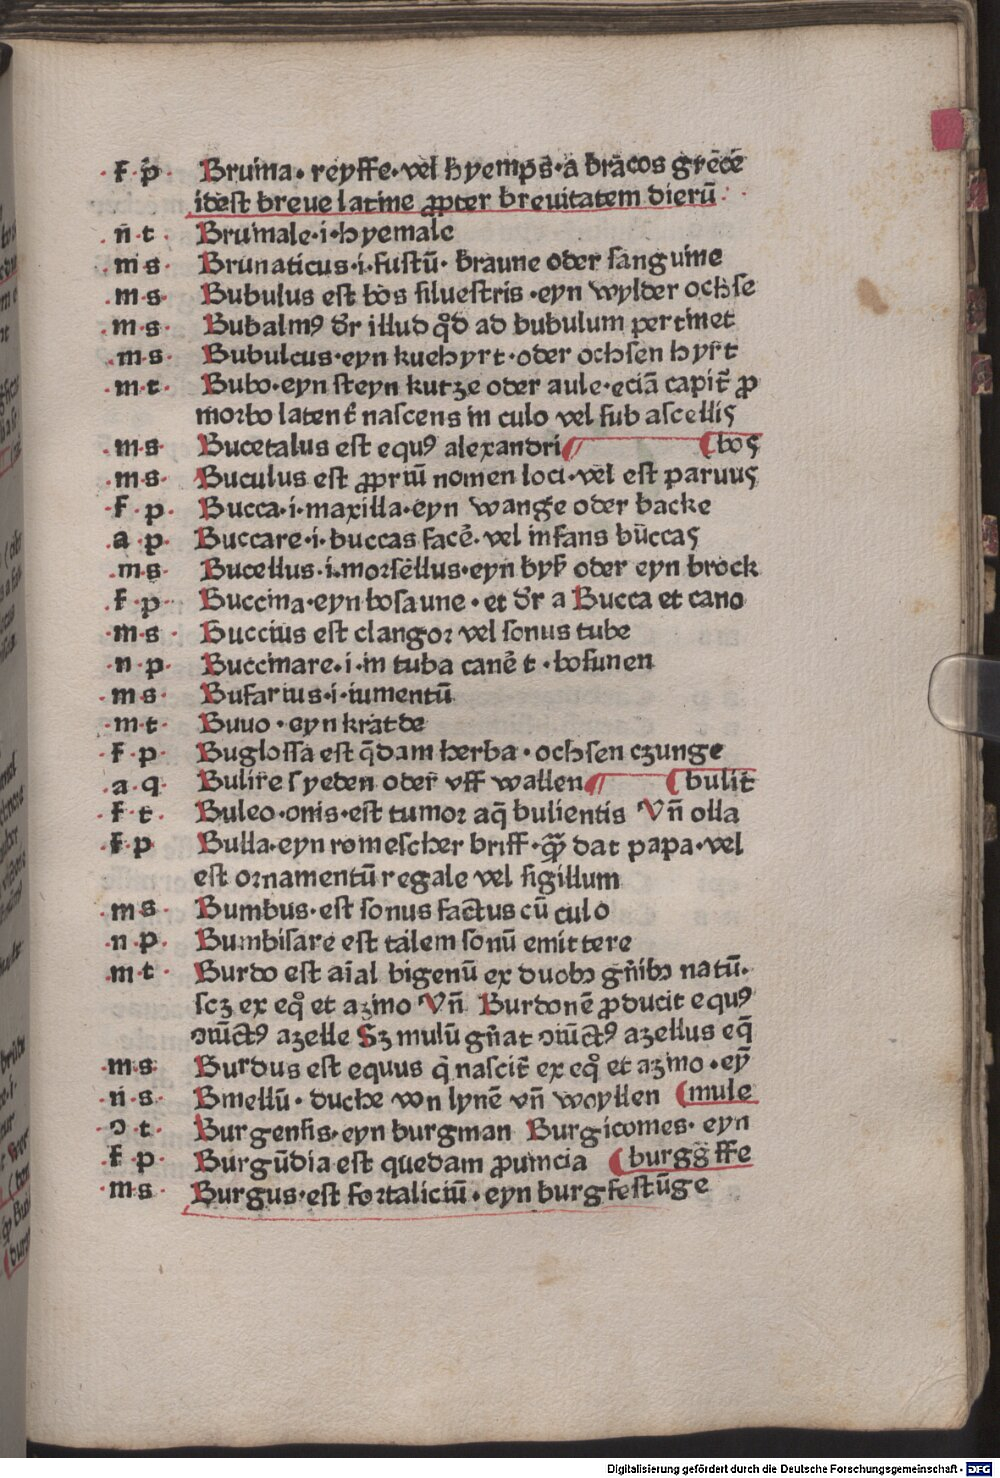 ·f·p̄· Bruma· reyffe·vel hyemps·a bracos grece
idest breue latine ꝓpter breuitatem dierū·
·n̄·t· Brumale·i·hyemale
·m·s· Brunaticus·i·fustū· braune oder sanguine
·m·s· Bubulus est bos siluestris·eyn wylder ochse
·m·s· Bubalmꝰ dr̄ illud qd̄ ad bubulum pertinet
·m·s· Bubulcus·eyn kuehyrt·oder ochsen hyrt
·m·t· Bubo·eyn steyn kutze oder aule·eciā capit̄ ꝓ
morbo latent̄ nascens in culo vel sub ascellis
·m·s· Bucefalus est equꝰ alexandri bos
·m·s· Buculus est ꝓpriū nomen loci·vel est paruus
·f·p· Bucca·i·maxilla·eyn wange oder backe
·a·p· Buccare·i·buccas facē·vel infans buccas
·m·s· Bucellus·i·morsellus·eyn byß oder eyn brock
·f·p· Buccina·eyn bosaune·et dr̄ a Bucca et cano
·m·s· Buccius est clangor vel sonus tube
·n·p· Buccinare·i·in tuba canē t·bosunen
·m·s· Bufarius·i·iumentū
·m·t· Buuo·eyn kratde
·f·p· Buglossa est q̄dam herba·ochsen czunge
·a·q· Bulire syeden oder vff wallen bulit
·f·t· Buleo·onis·est tumor aq̄ bulientis Vn̄ olla
·f·p Bulla·eyn romescher briff·quā dat papa·vel
est ornamentū regale vel sigillum
·m·s· Bumbus·est sonus factus cū culo
·n·p· Bumbisare est talem sonū emittere
·m·t· Burdo est aīal bigenū ex duobꝫ gn̄ibꝫ natū·
scꝫ ex eq̊ et azino Vn̄ Burdonē ꝓducit equꝰ
ↄiūctꝰ azelle Sꝫ mulū gn̄at ↄiūctꝰ azellus eq̄
·m·s· Burdus est equus q̇ nascit̄ ex eq̊ et azino·eȳ
·n·s· Bmellū·duche von lynē vn̄ woyllen mule
·ↄ·t· Burgensis·eyn burgman Burgicomes·eyn
·f·p· Burgūdia est quedam ꝓuincia burggffe
·m·s· Burgus·est fortaliciū·eyn burgfestūge
Digitalisierung gefördert durch die Deutsche Forschungsgemeinschaft - DFG